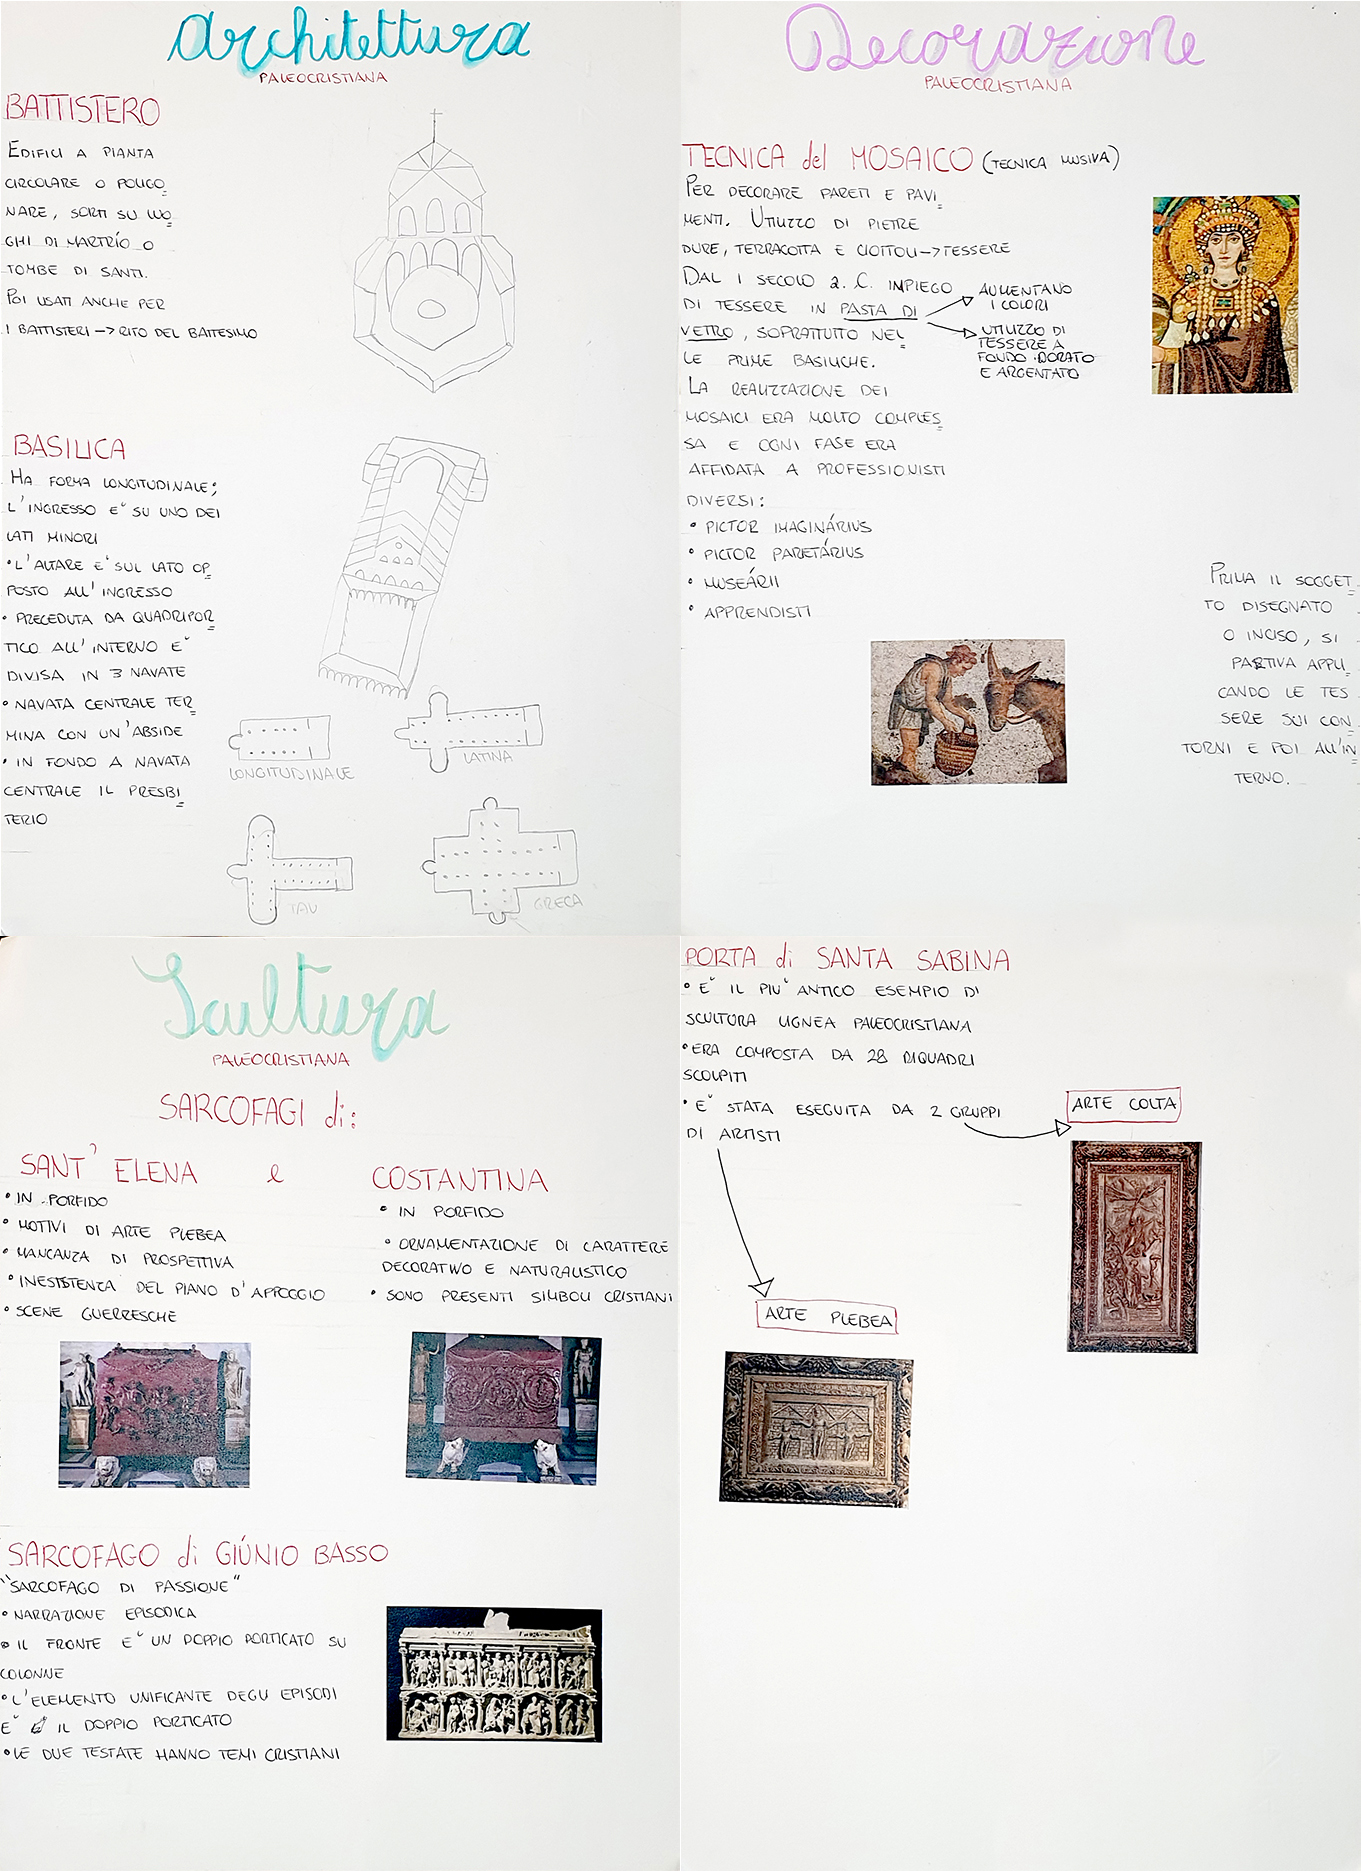 Architettura
PALEOCRISTIANA
BATTISTERO
EDIFICI A PIANTA
CIRCOLARE O POLIGO
NARE, SORTI SU LUO
GHI DI MARTRÍO O
TOMBE DI SANTI.
POI USATI ANCHE PER
I BATTISTERI → RITO DEL BATTESIMO
BASILICA
HA FORMA LONGITUDINALE;
L'INGRESSO E' SU UNO DEI
LATI MINORI
• L'ALTARE E' SUL LATO OP
POSTO ALL'INGRESSO
• PRECEDUTA DA QUADRIPOR
TICO ALL'INTERNO E'
DIVISA IN 3 NAVATE
• NAVATA CENTRALE TER
MINA CON UN'ABSIDE
• IN FONDO A NAVATA
CENTRALE IL PRESBI
TERIO
LONGITUDINALE
LATINA
TAU
GRECA
Decorazione
PALEOCRISTIANA
TECNICA del MOSAICO (TECNICA MUSIVA)
PER DECORARE PARETI E PAVI
MENTI. UTILIZZO DI PIETRE
DURE, TERRACOTTA E CIOTTOLI → TESSERE
DAL I SECOLO a.C. IMPIEGO
DI TESSERE IN PASTA DI
VETRO, SOPRATTUTTO NEL
LE PRIME BASILICHE.
AUMENTANO
I COLORI
UTILIZZO DI
TESSERE A
FONDO DORATO
E ARGENTATO
LA REALIZZAZIONE DEI
MOSAICI ERA MOLTO COMPLES
SA E OGNI FASE ERA
AFFIDATA A PROFESSIONISTI
DIVERSI:
• PICTOR IMAGINÁRIUS
• PICTOR PARETÁRIUS
• MUSEÁRII
• APPRENDISTI
PRIMA IL SOGGET
TO DISEGNATO
O INCISO, SI
PARTIVA APPLI
CANDO LE TES
SERE SUI CON
TORNI E POI ALL'IN
TERNO.
Scultura
PALEOCRISTIANA
SARCOFAGI di:
SANT'ELENA e COSTANTINA
• IN PORFIDO
• MOTIVI DI ARTE PLEBEA
• MANCANZA DI PROSPETTIVA
• INESISTENZA DEL PIANO D'APPOGGIO
• SCENE GUERRESCHE
• IN PORFIDO
• ORNAMENTAZIONE DI CARATTERE
DECORATIVO E NATURALISTICO
• SONO PRESENTI SIMBOLI CRISTIANI
SARCOFAGO di GIÚNIO BASSO
"SARCOFAGO DI PASSIONE"
• NARRAZIONE EPISODICA
• IL FRONTE E' UN DOPPIO PORTICATO SU
COLONNE
• L'ELEMENTO UNIFICANTE DEGLI EPISODI
E' IL DOPPIO PORTICATO
• LE DUE TESTATE HANNO TEMI CRISTIANI
PORTA di SANTA SABINA
• E' IL PIU' ANTICO ESEMPIO DI
SCULTURA LIGNEA PALEOCRISTIANA
• ERA COMPOSTA DA 28 RIQUADRI
SCOLPITI
• E' STATA ESEGUITA DA 2 GRUPPI
DI ARTISTI
ARTE COLTA
ARTE PLEBEA